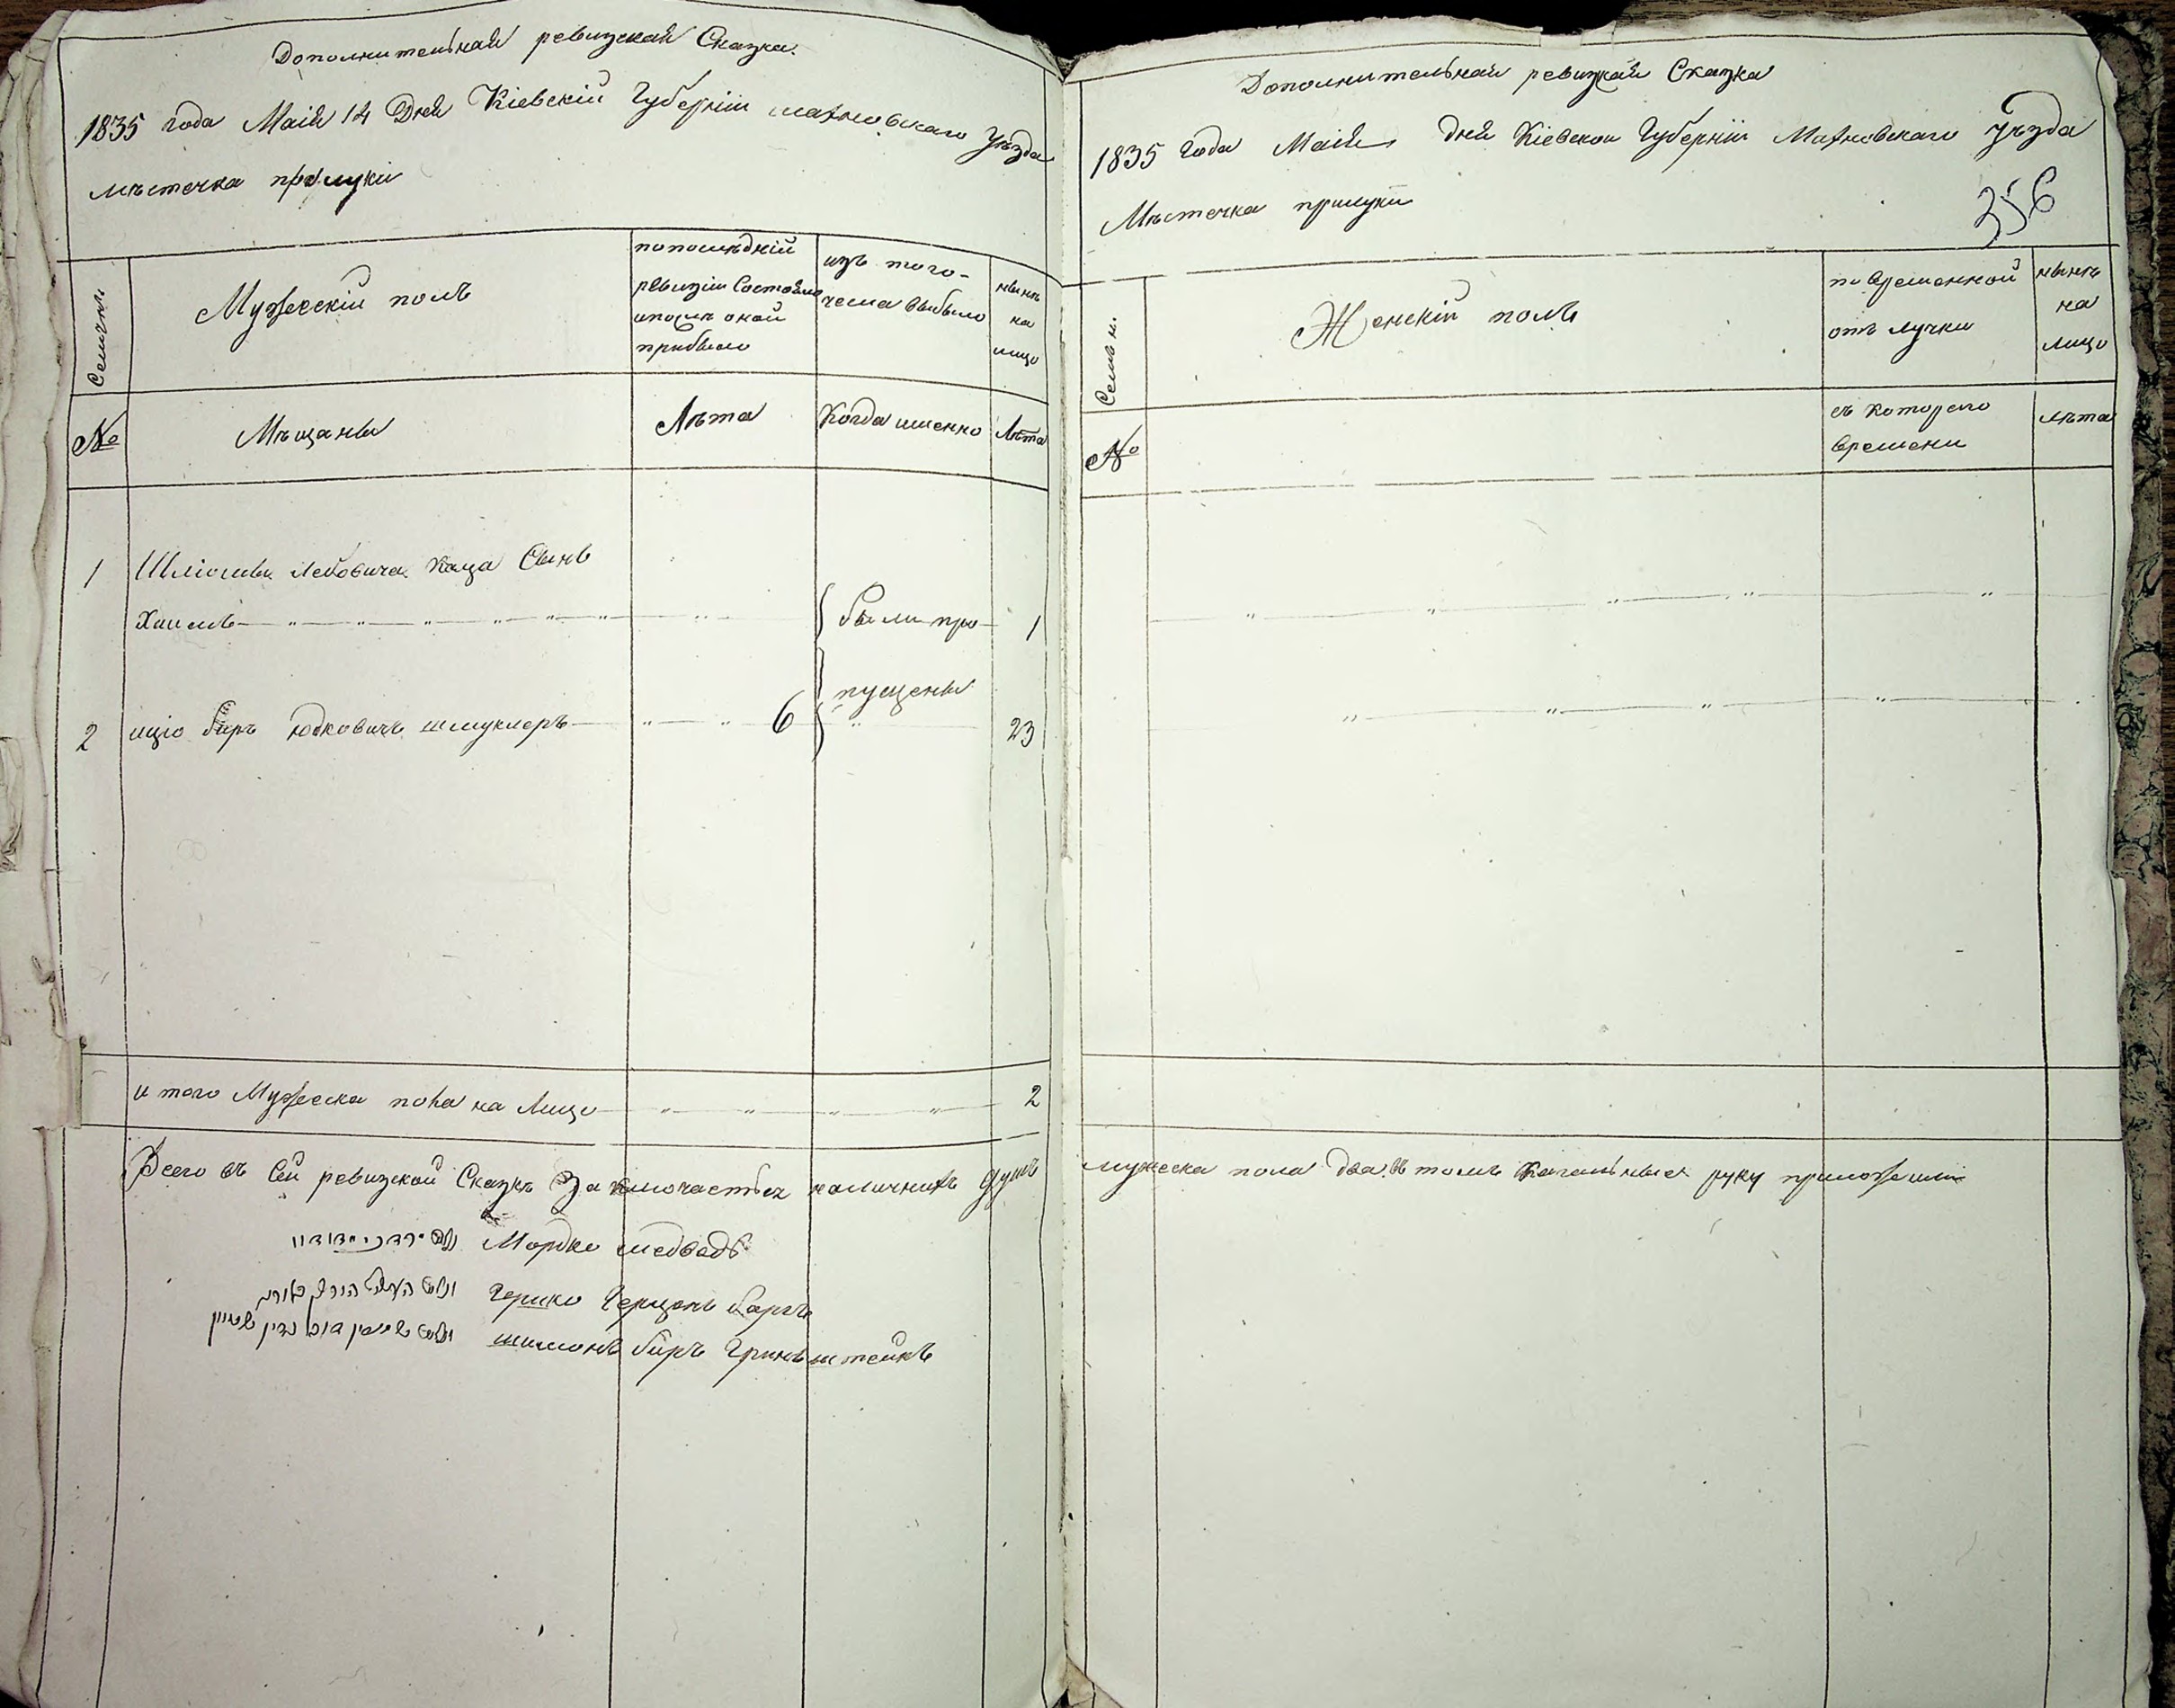 Дополнительная ревизская Сказка.
1835 года Маія 14 Дня Кіевскій Губерніи махновскаго Уѣзда
мѣстечка прилуки
Семьи
Мужескій полъ
по последній
ревизіи Состояло
и после оной
прибыло
изъ того
числа выбыло
нынѣ
на
лицо
№
Мѣщаны
Лѣта
Когда именно
Лѣта
1
Шліомы Лейбовича Каца Сынъ
Хаимъ
были про-
1
пущены
2
иціо беръ Юдковичъ шмуклеръ
6
23
и того Мужеска пола на Лицо
2
Всего въ Сей ревизской Сказкѣ Заключается наличнихъ душъ
Мордко медведь
Гершко Герцонъ
шимонъ беръ Гринъштейнъ
Дополнительная ревизкая Сказка
1835 Года Маія Дня Кіевской Губерніи Махновскаго Уѣзда
Мѣстечка прилуки
356
Семьи.
Женскій полъ
во временной
отлучки
нынѣ
на
лицо
№
съ котораго
времени
лѣта
мужеска пола два. въ томъ Кагальные руку приложили